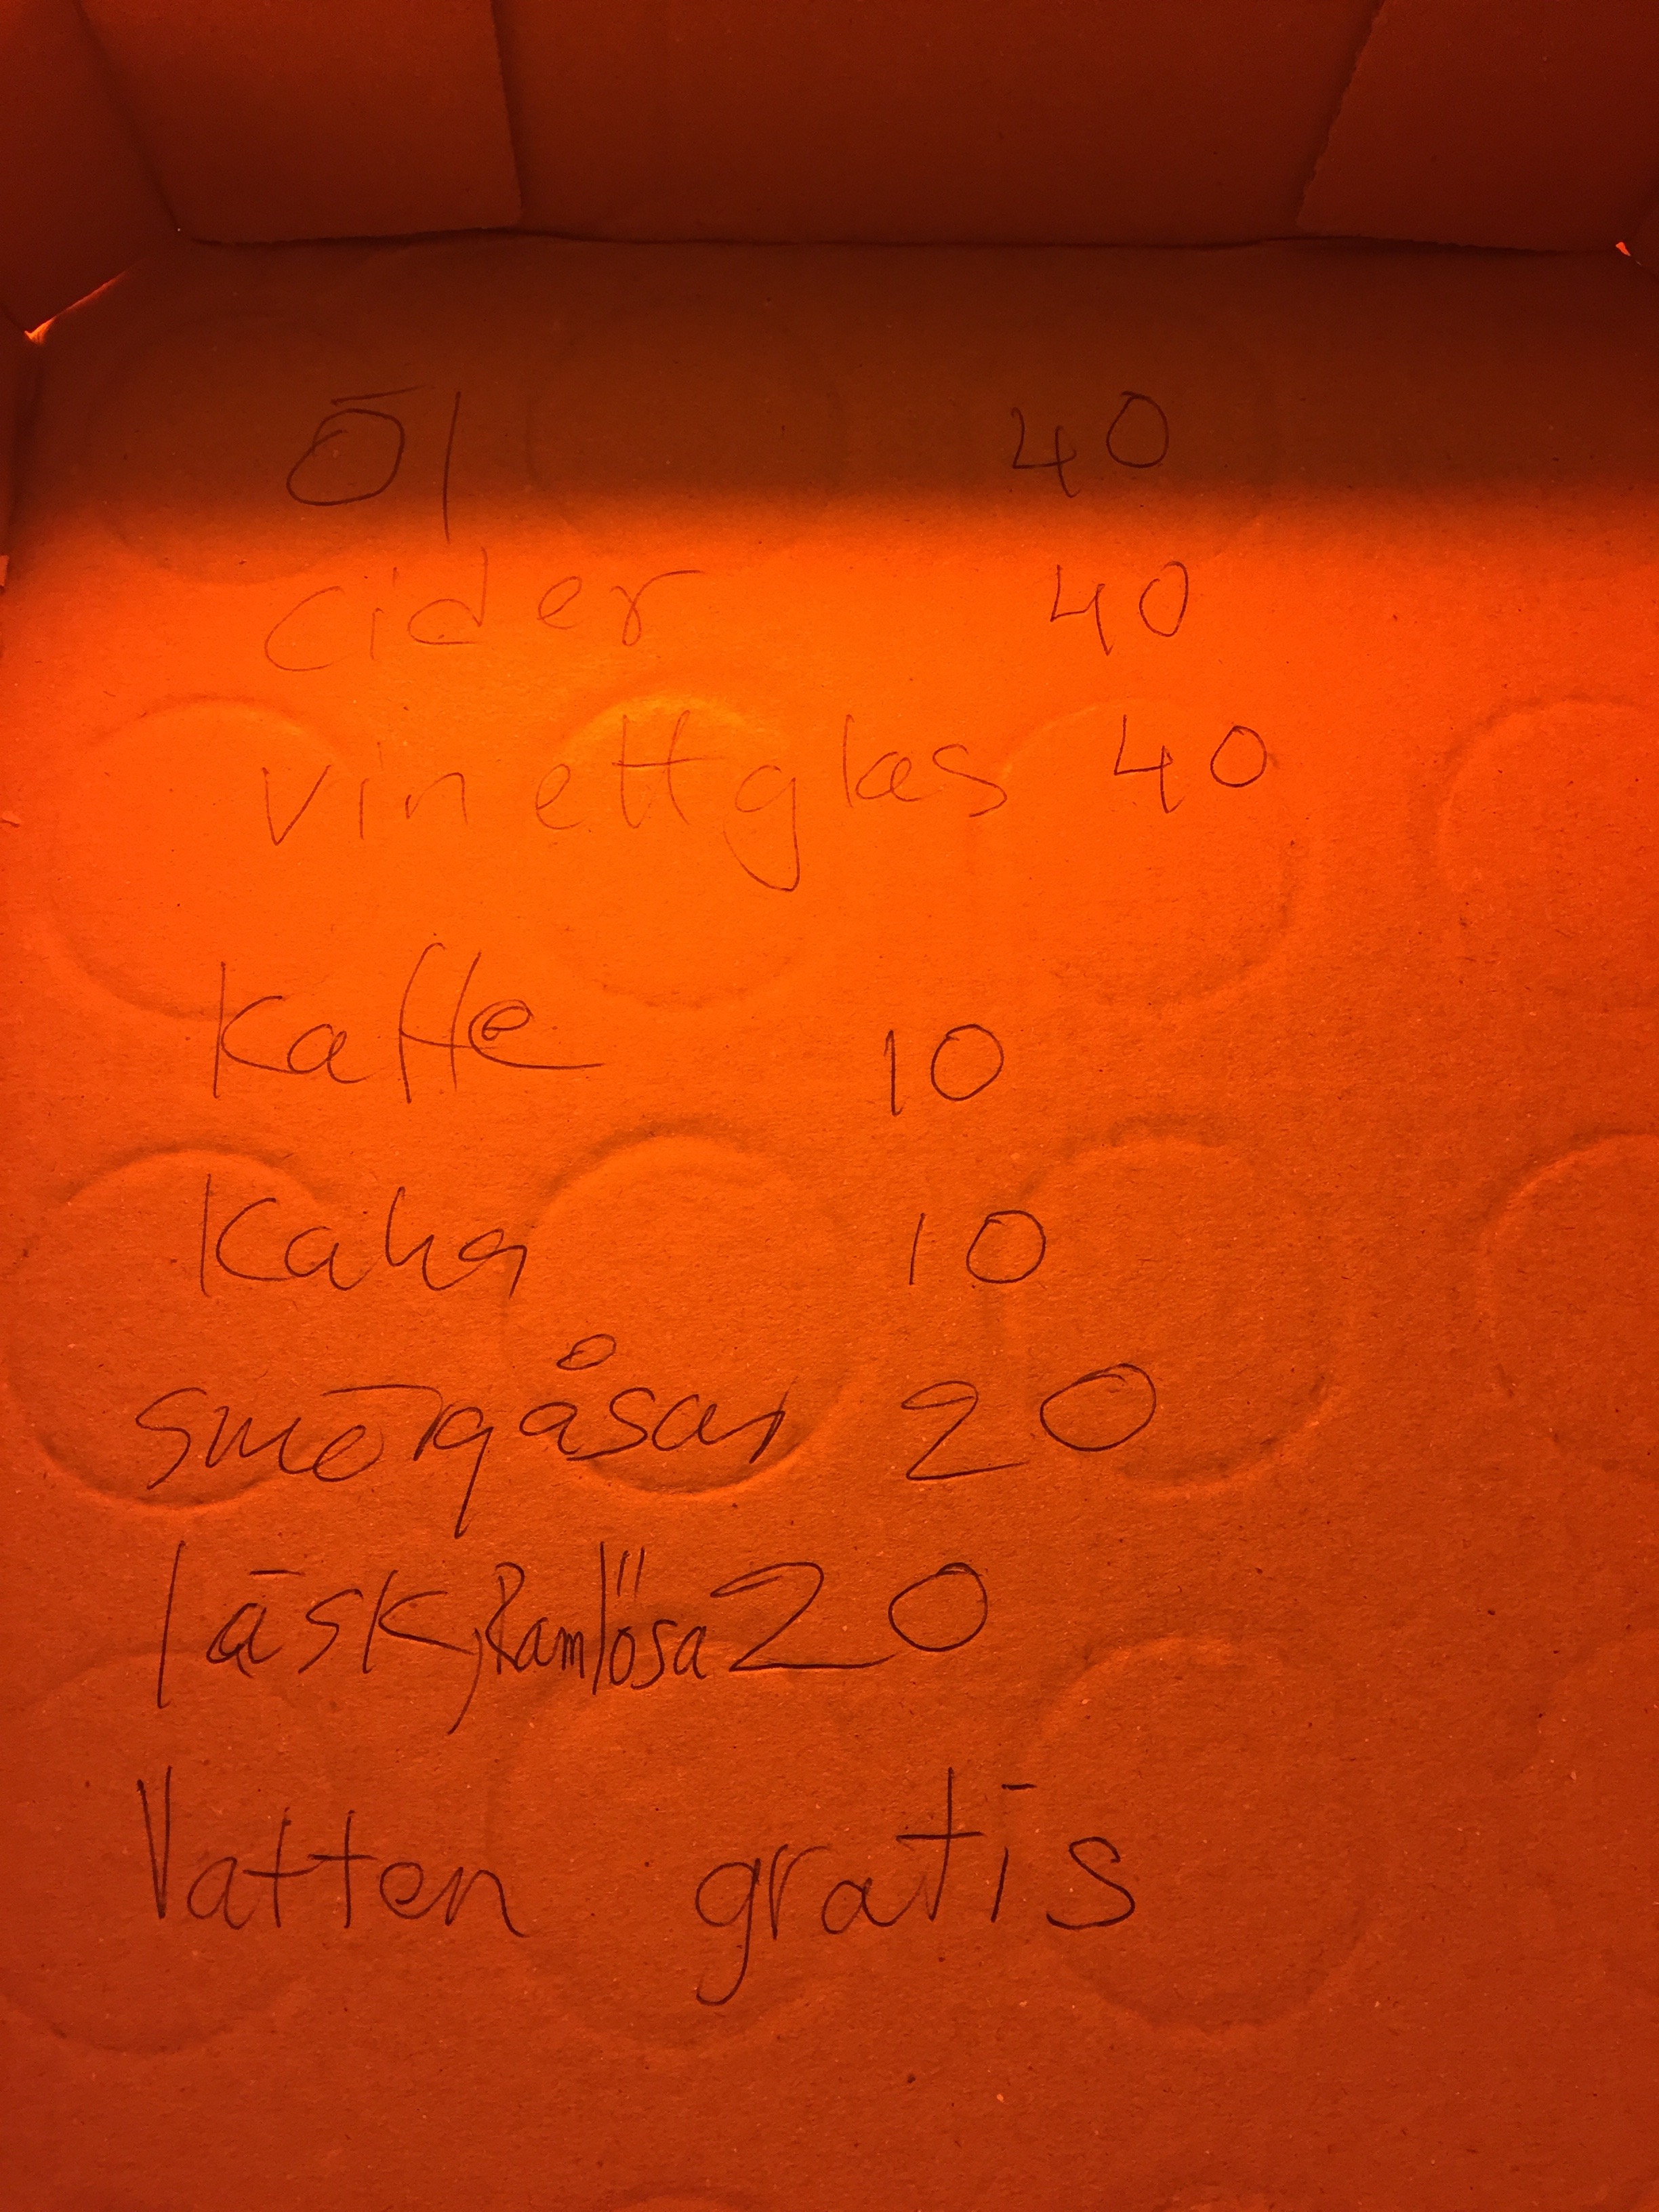 Öl 40
cider 40
vin ett glas 40
Kaffe 10
Kaka 10
smörgåsar 20
läsk, Ramlösa 20
Vatten gratis